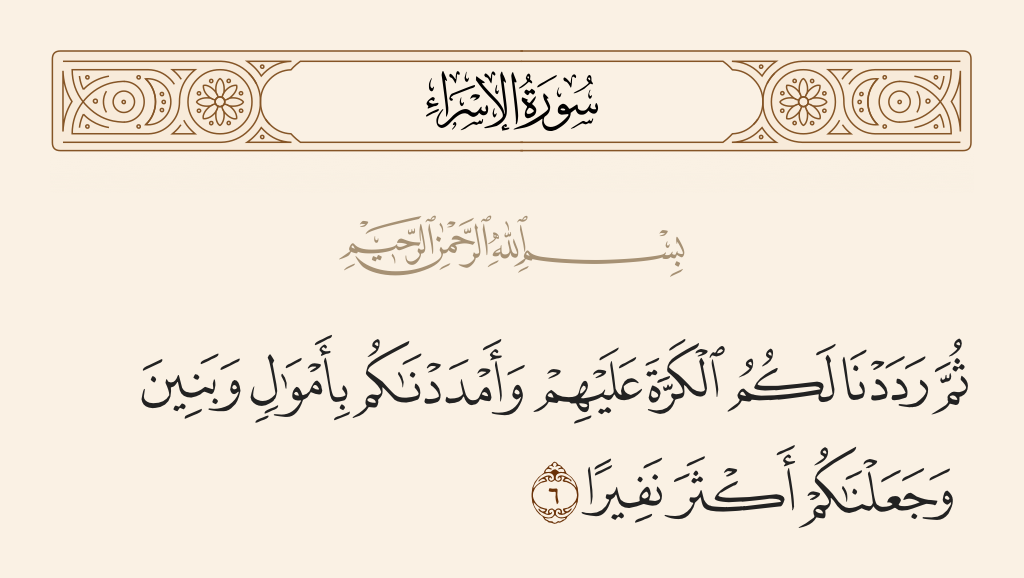 سُورَةُ الإِسْرَاءِ
بِسْمِ ٱللَّهِ ٱلرَّحْمَٰنِ ٱلرَّحِيمِ
ثُمَّ رَدَدْنَا لَكُمُ ٱلْكَرَّةَ عَلَيْهِمْ وَأَمْدَدْنَٰكُم بِأَمْوَٰلٍ وَبَنِينَ
وَجَعَلْنَٰكُمْ أَكْثَرَ نَفِيرًا ٦